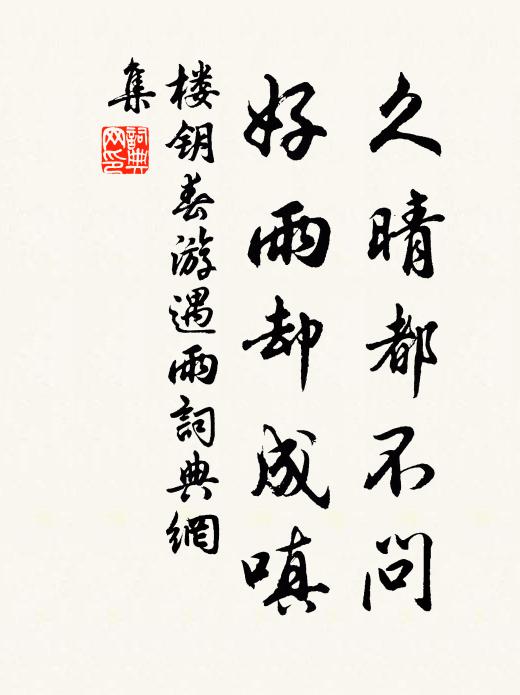 久晴都不问
好雨却成嗔
楼钥春游遇雨詞典網
集
詞典
网印